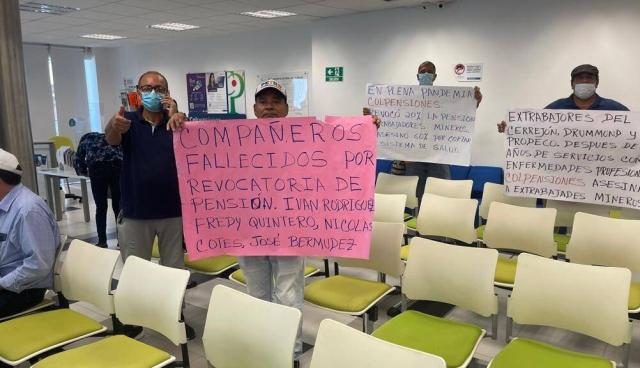 COMPAÑEROS
FALLECIDOS POR
REVOCATORIA DE
PENSIÓN. IVAN RODRIGUEZ
FREDY QUINTERO, NICOLAS
COTES, JOSÉ BERMUDEZ
EN PLENA PANDEMIA
COLPENSIONES
REVOCO 20% LA PENSION
TRABAJADORES MINEROS
ASESINO 60% POR CORTAR
SISTEMA DE SALUD
EXTRABAJORES DEL
CERREJÓN, DRUMMOND Y
PRODECO. DESPUES DE
AÑOS DE SERVICIOS CON
ENFERMEDADES PROFESION
COLPENSIONES ASESINA
EXTRABAJADES MINEROS
SALIDA